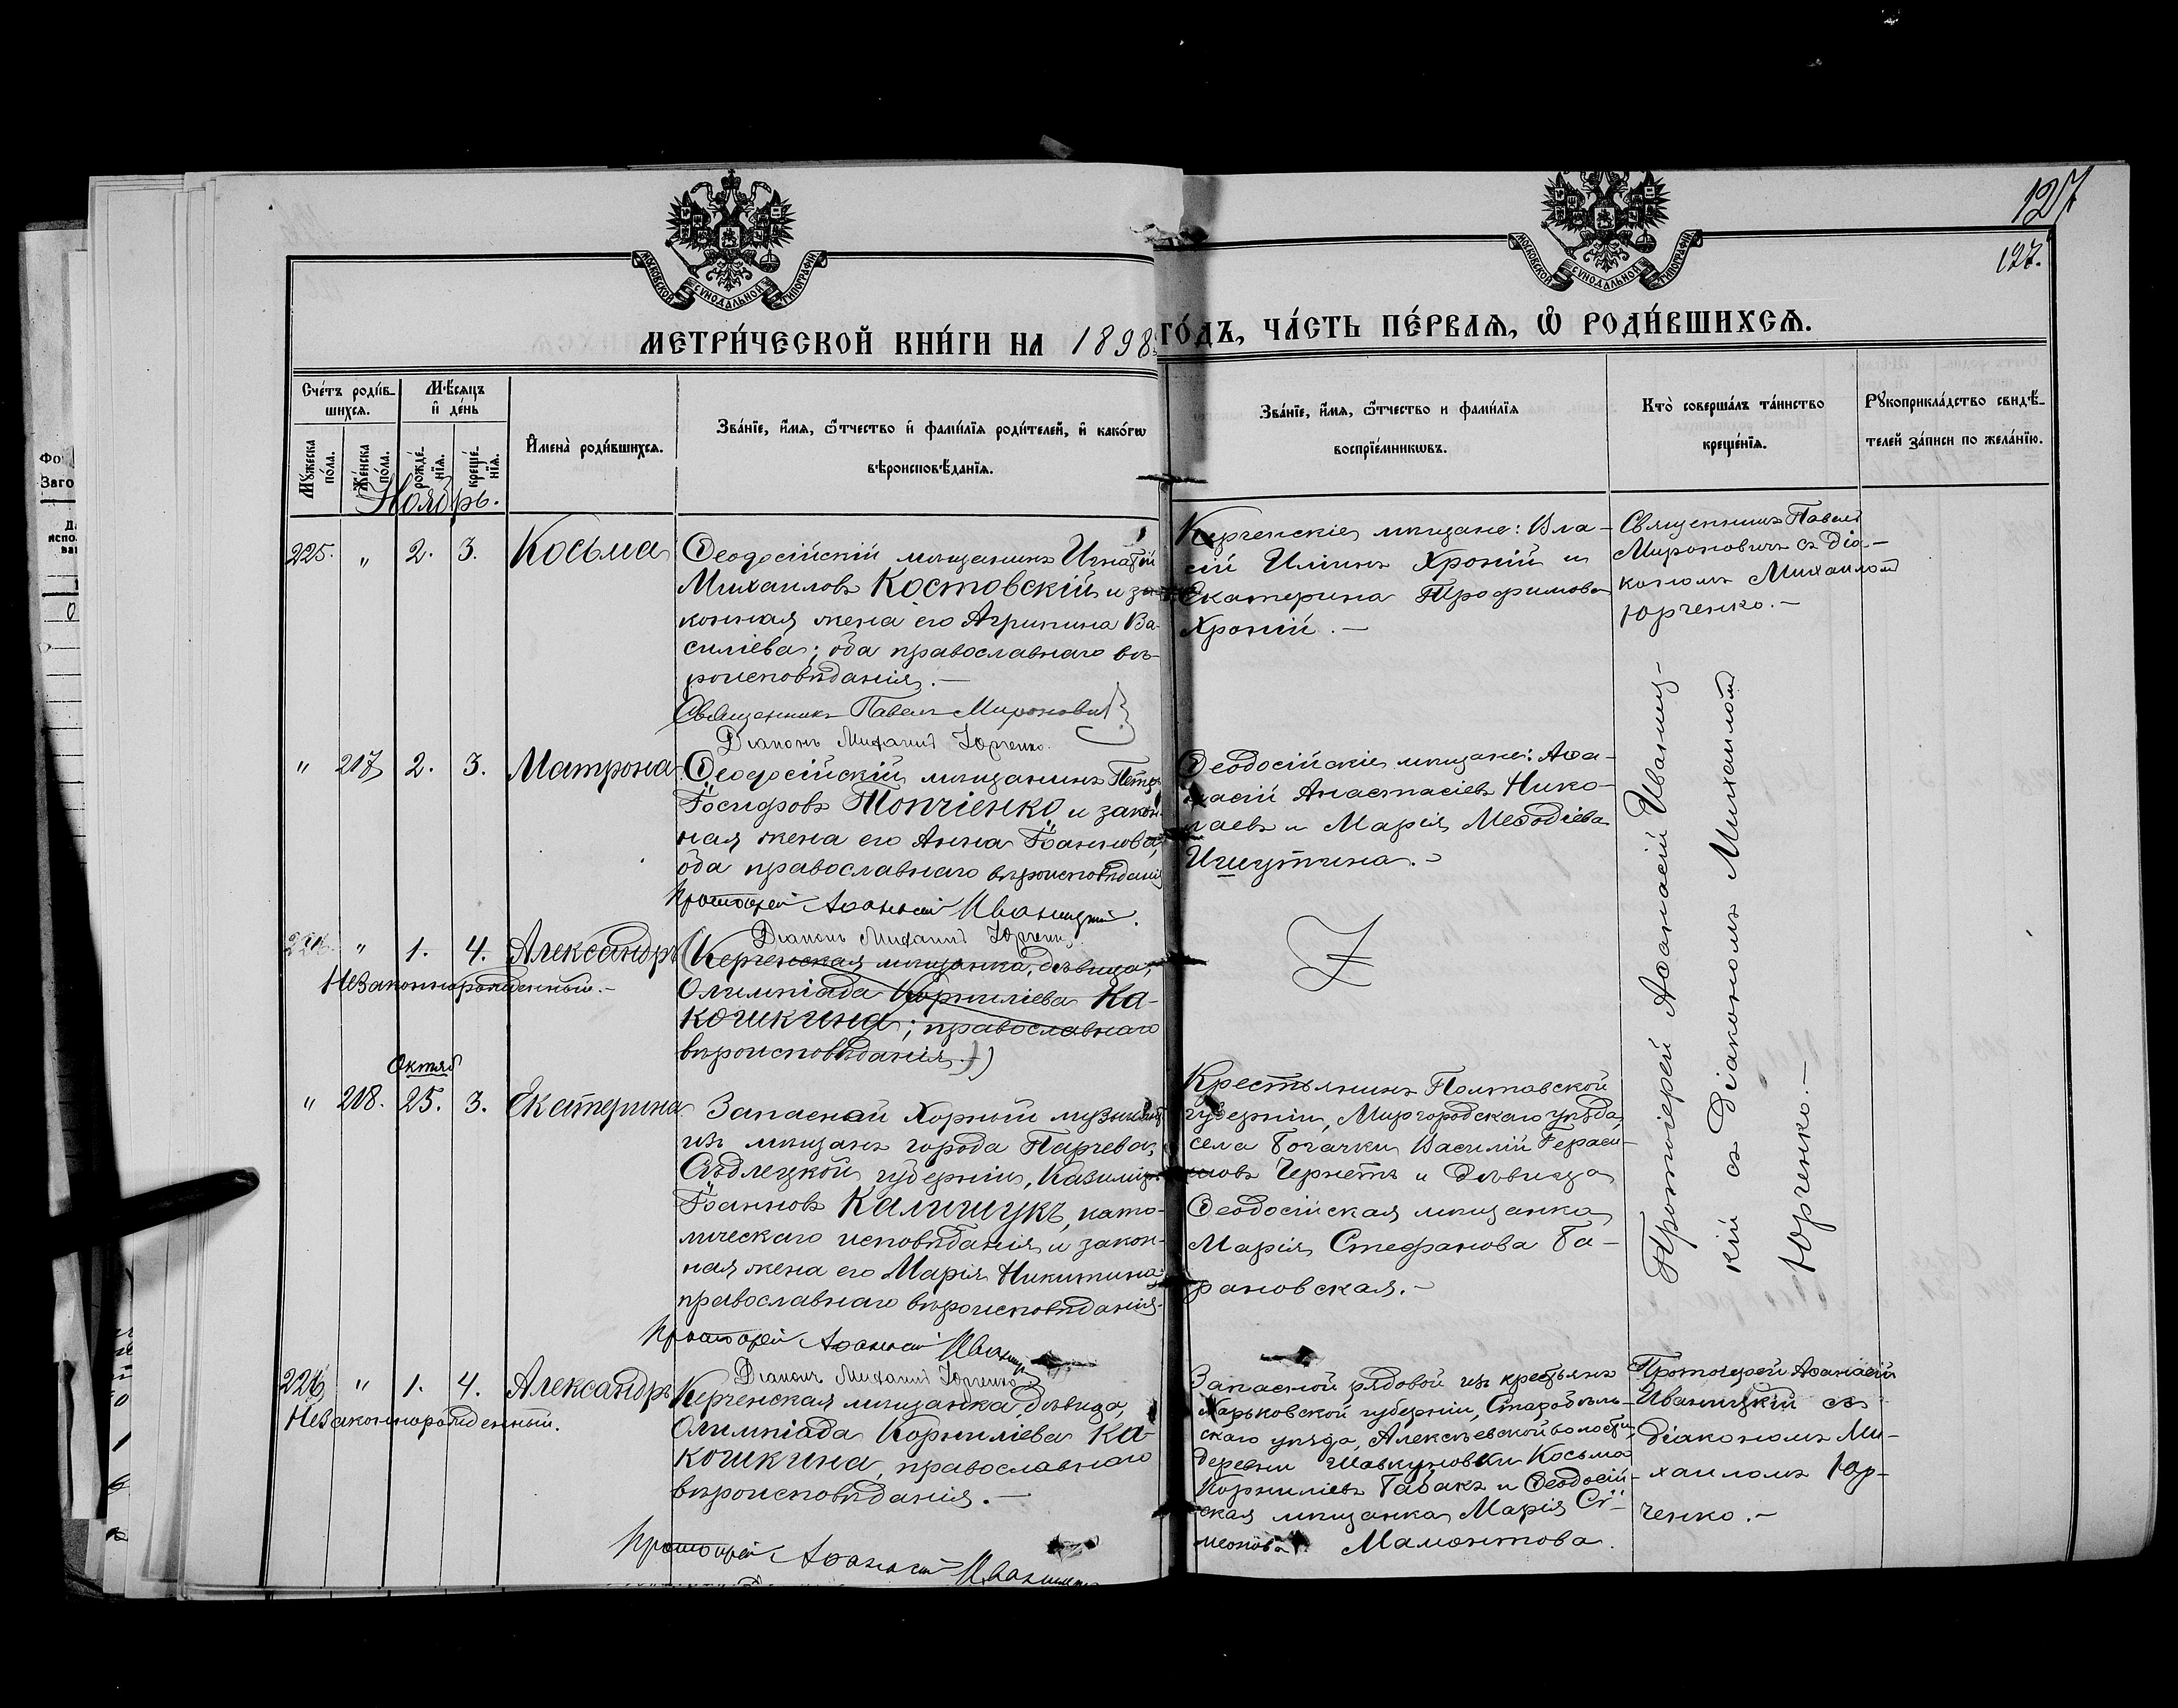 127
127.
МОСКОВСКОЙ СѴНОДАЛЬНОЙ ТИПОГРАФІИ
МОСКОВСКОЙ СѴНОДАЛЬНОЙ ТИПОГРАФІИ
МЕТРИ́ЧЕСКОЙ КНИ́ГИ НА 1898 ГО́ДЪ, ЧА́СТЬ ПЕ́РВАѦ, Ѡ҆ РОДИ́ВШИХСѦ.
Сче́тъ роди́в-
шихся.
Мꙋжеска
по́ла.
Же́нска
по́ла.
Мѣ́сяцъ
и҆ де́нь
рожде́-
нїѧ.
креще́-
нїѧ.
И҆мена̀ роди́вшихсѧ.
Зва́нїе, и҆́мѧ, ѻ҆́тчество и҆ фами́лїѧ роди́телей, и҆ како́гѡ
вѣроисповѣ́данїѧ.
Зва́нїе, и҆́мѧ, ѻ҆́тчество и фами́лїѧ
воспрїе́мникѡвъ.
Кто̀ соверша́лъ та́инство
креще́нїѧ.
Рꙋкоприкла́дство свидѣ́-
телей за́писи по жела́нїю.
Ноябрь.
225. " 2. 3. Косьма
Ѳеодосійскій мѣщанинъ Игнатій
Михаиловъ Костовскій и за-
конная жена его Агрипина Ва-
силіева; оба православнаго вѣ-
роисповѣданія.-
Священникъ Павелъ Мироновичъ
Діаконъ Михаилъ Юрченко.
Керченскіе мѣщане: Вла-
сій Иліинъ Хроній и
Екатерина Трофимова
Хроній.-
Священникъ Павелъ
Мироновичъ съ діа-
кономъ Михаиломъ
Юрченко.-
" 217 2. 3. Матрона
Ѳеодосійскій мѣщанинъ Петръ
Іосифовъ Топчіенко и закон-
ная жена его Анна Іоаннова,
оба православнаго вѣроисповѣданія
Протоіерей Аѳанасій Иваницкій.
Діаконъ Михаилъ Юрченко.
Ѳеодосійскіе мѣщане: Аѳа-
насій Анастасіевъ Нико-
лаевъ и Марія Меѳодіева
Ишутина.-
Протоіерей Аѳанасій Иваниц-
кій съ Діакономъ Михаиломъ
Юрченко.-
226. " 1. 4. Александръ
Незаконнорожденный.-
(Керченская мѣщанка, дѣвица,
Олимпіада Корниліева Ка-
кошкина; православнаго
вѣроисповѣданія.-)
Октяб
" 218. 25. 3. Екатерина
Запасной Хорный музыкантъ
изъ мѣщанъ города Парчева,
Сѣдлецкой губерніи, Казиміръ
Іоанновъ Калишукъ, като-
лическаго исповѣданія и закон-
ная жена его Марія Никитина,
православнаго вѣроисповѣданія.
Протоіерей Аѳанасій Иваниц
Діаконъ Михаилъ Юрченко
Крестьянинъ Полтавской
губерніи, Миргородскаго уѣзда,
села Богачки Василій Гераси-
мовъ Чернетъ и дѣвица
Ѳеодосійская мѣщанка
Марія Стефанова Ба-
рановская.-
226 " 1. 4. Александръ
Незаконнорожденный.
Керченская мѣщанка, дѣвица,
Олимпіада Корниліева Ка-
кошкина, православнаго
вѣроисповѣданія.-
Протоіерей Аѳанасій Иваниц
Запасной рядовой изъ крестьянъ
Харьковской губерніи, Старобѣль-
скаго уѣзда, Алексѣевской волости,
деревни Шавкуновки Косьма
Корниліевъ Габакъ и Ѳеодосій-
ская мѣщанка Марія Сѵ-
меонова Мамонтова.
Протоіерей Аѳанасій
Иваницкій съ
діакономъ Ми-
хаиломъ Юр-
ченко.-